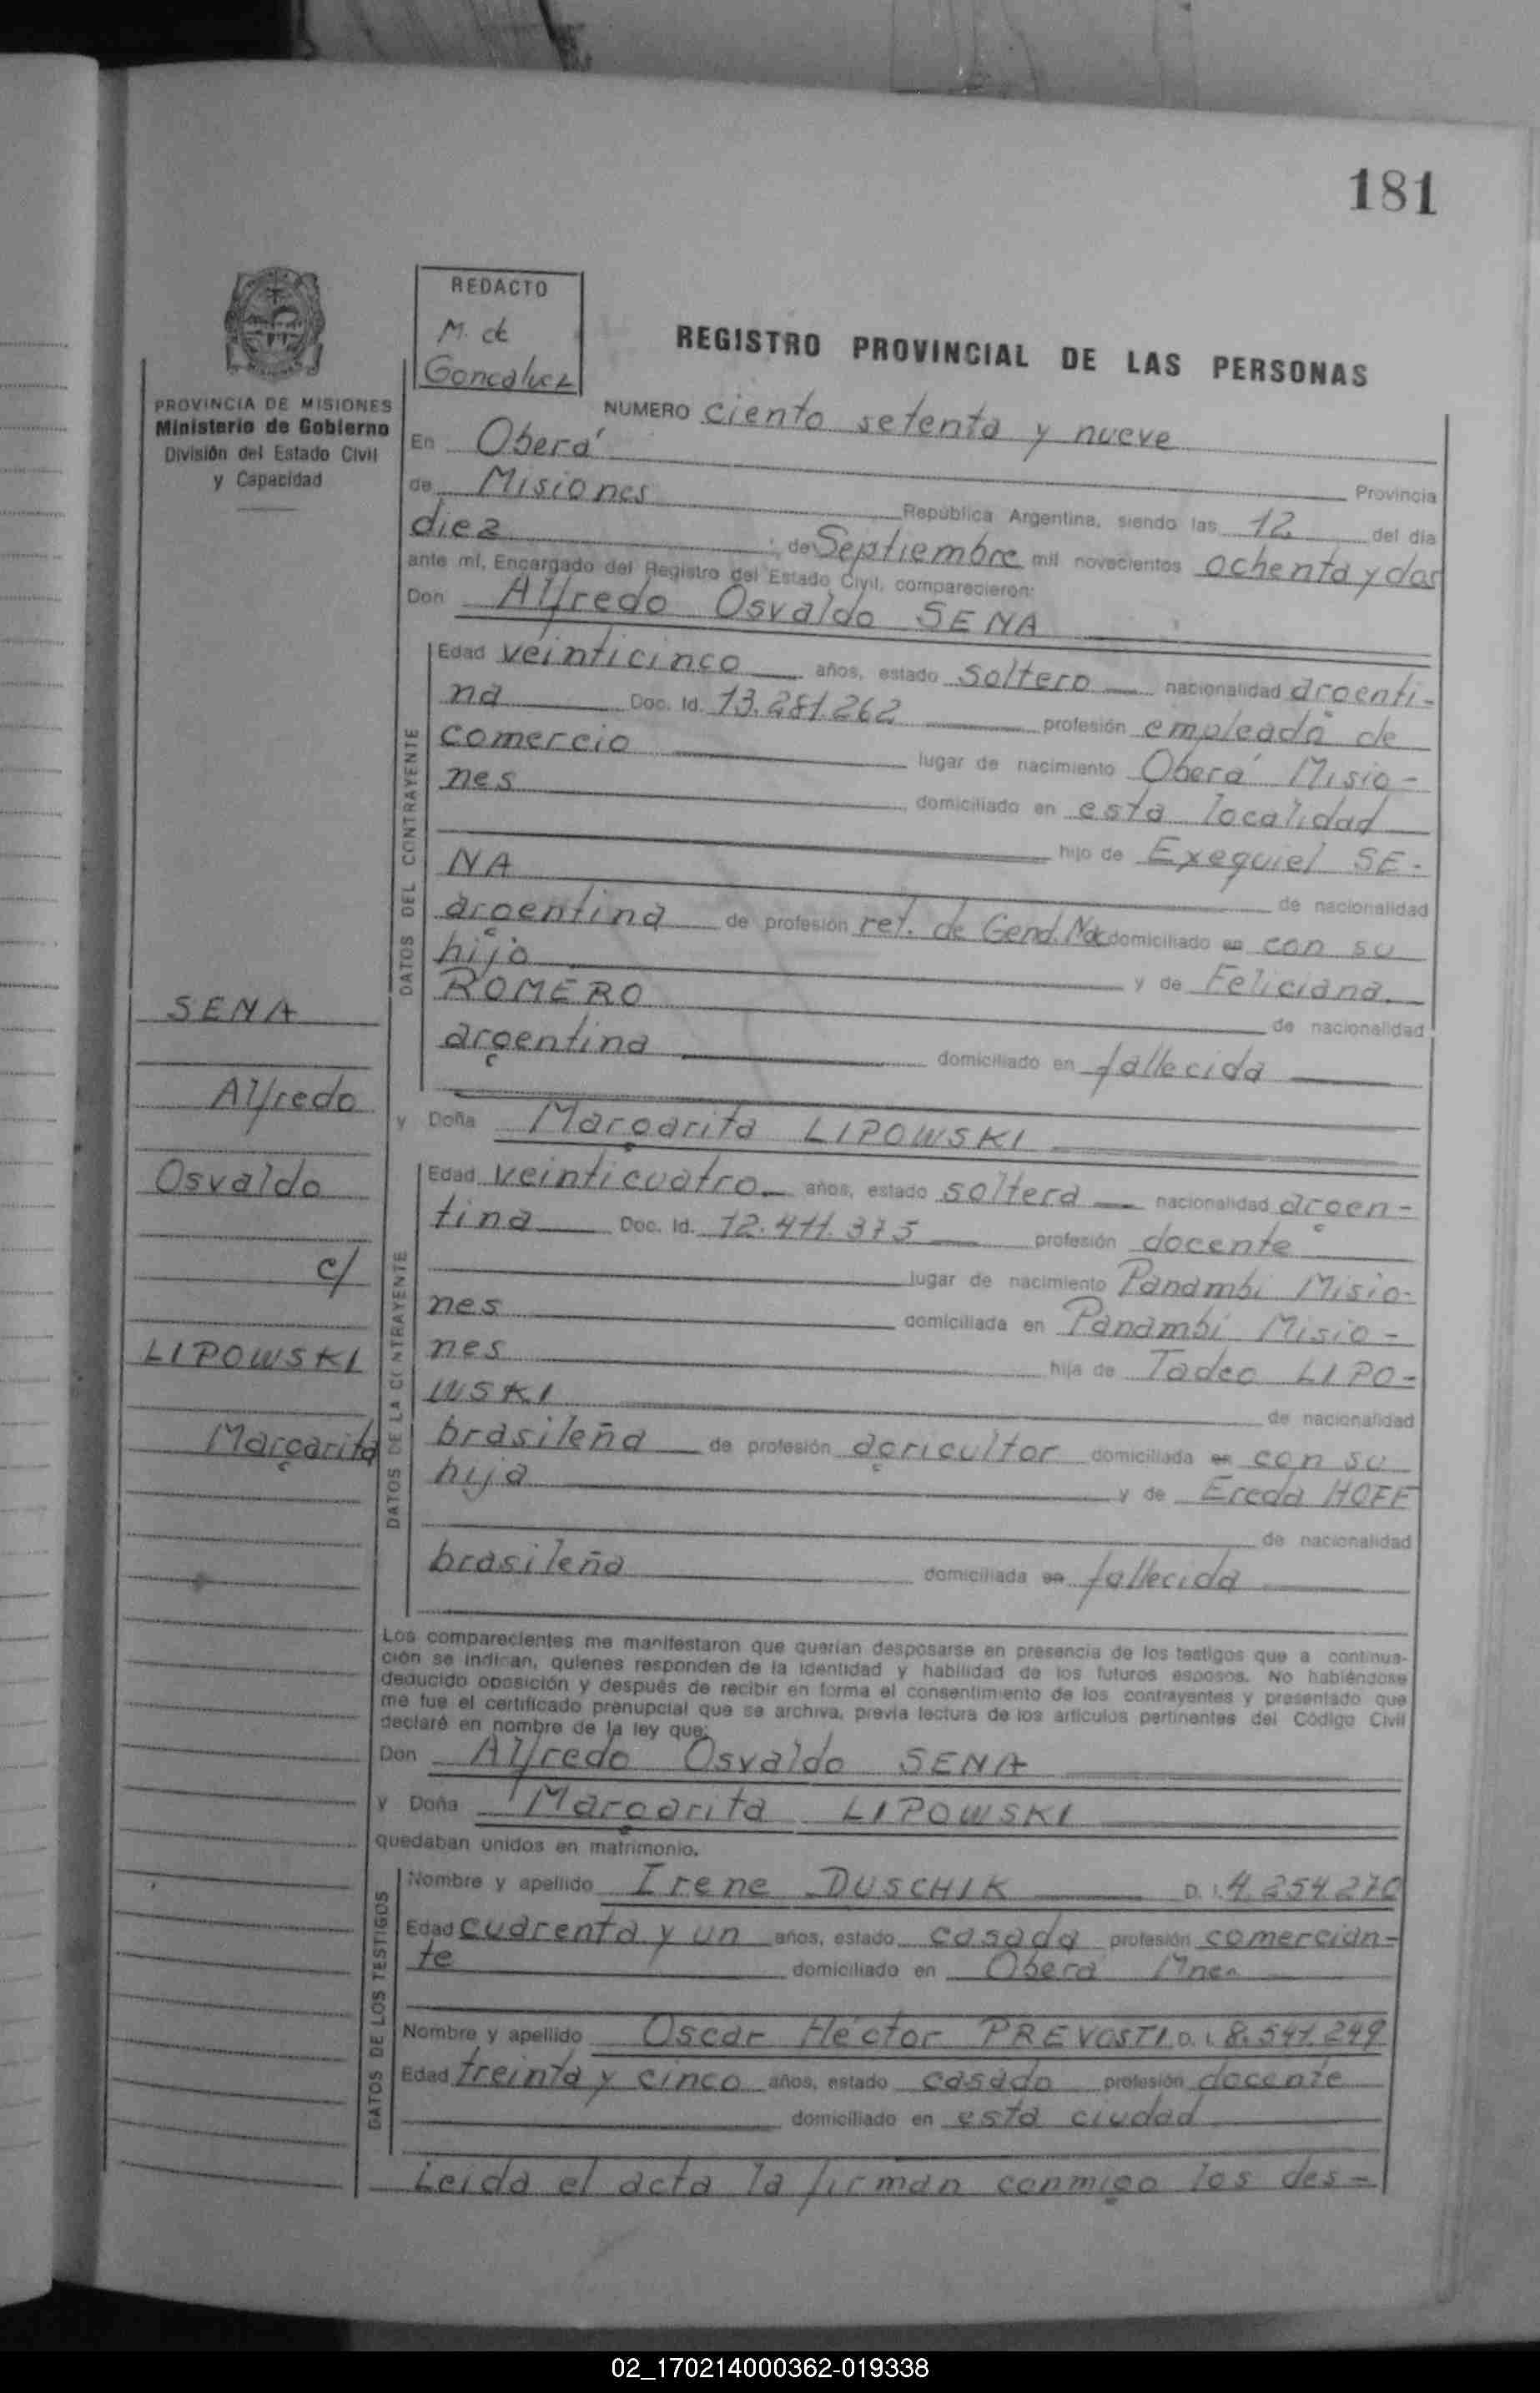 181
REDACTO
M. de
Goncalvez
REGISTRO PROVINCIAL DE LAS PERSONAS
PROVINCIA DE MISIONES
Ministerio de Gobierno
División del Estado Civil
y Capacidad
NUMERO ciento setenta y nueve
En Oberá
Provincia
de Misiones República Argentina, siendo las 12 del día
diez de Septiembre mil novecientos ochenta y dos
ante mí, Encargado del Registro del Estado Civil, comparecieron:
Don Alfredo Osvaldo SENA
DATOS DEL CONTRAYENTE
Edad veinticinco años, estado soltero nacionalidad argenti-
na Doc. Id. 13.281.262 profesión empleado de
comercio lugar de nacimiento Oberá Misio-
nes domiciliado en esta localidad
hijo de Exequiel SE-
NA de nacionalidad
argentina de profesión ret. de Gend. Nac domiciliado en con su
hijo y de Feliciana
ROMERO de nacionalidad
argentina domiciliado en fallecida
y Doña Margarita LIPOWSKI
DATOS DE LA CONTRAYENTE
Edad veinticuatro años, estado soltera nacionalidad argen-
tina Doc. Id. 12.411.375 profesión docente
lugar de nacimiento Panambí Misio-
nes domiciliada en Panambí Misio-
nes hija de Tadeo LIPO-
WSKI de nacionalidad
brasileña de profesión agricultor domiciliada en con su
hija y de Ereda HOFF
de nacionalidad
brasileña domiciliada en fallecida
SENA
Alfredo
Osvaldo
c/
LIPOWSKI
Margarita
Los comparecientes me manifestaron que querían desposarse en presencia de los testigos que a continua-
ción se indican, quienes responden de la identidad y habilidad de los futuros esposos. No habiéndose
deducido oposición y después de recibir en forma el consentimiento de los contrayentes y presentado que
me fue el certificado prenupcial que se archiva, previa lectura de los artículos pertinentes del Código Civil
declaré en nombre de la ley que:
Don Alfredo Osvaldo SENA
y Doña Margarita LIPOWSKI
quedaban unidos en matrimonio.
DATOS DE LOS TESTIGOS
Nombre y apellido Irene DUSCHIK D. I. 4.254.270
Edad cuarenta y un años, estado casada profesión comercian-
te domiciliado en Oberá Mnes
Nombre y apellido Oscar Héctor PREVOSTI D. I. 8.541.249
Edad treinta y cinco años, estado casado profesión docente
domiciliado en esta ciudad
Leída el acta la firman conmigo los des-
02_170214000362-019338